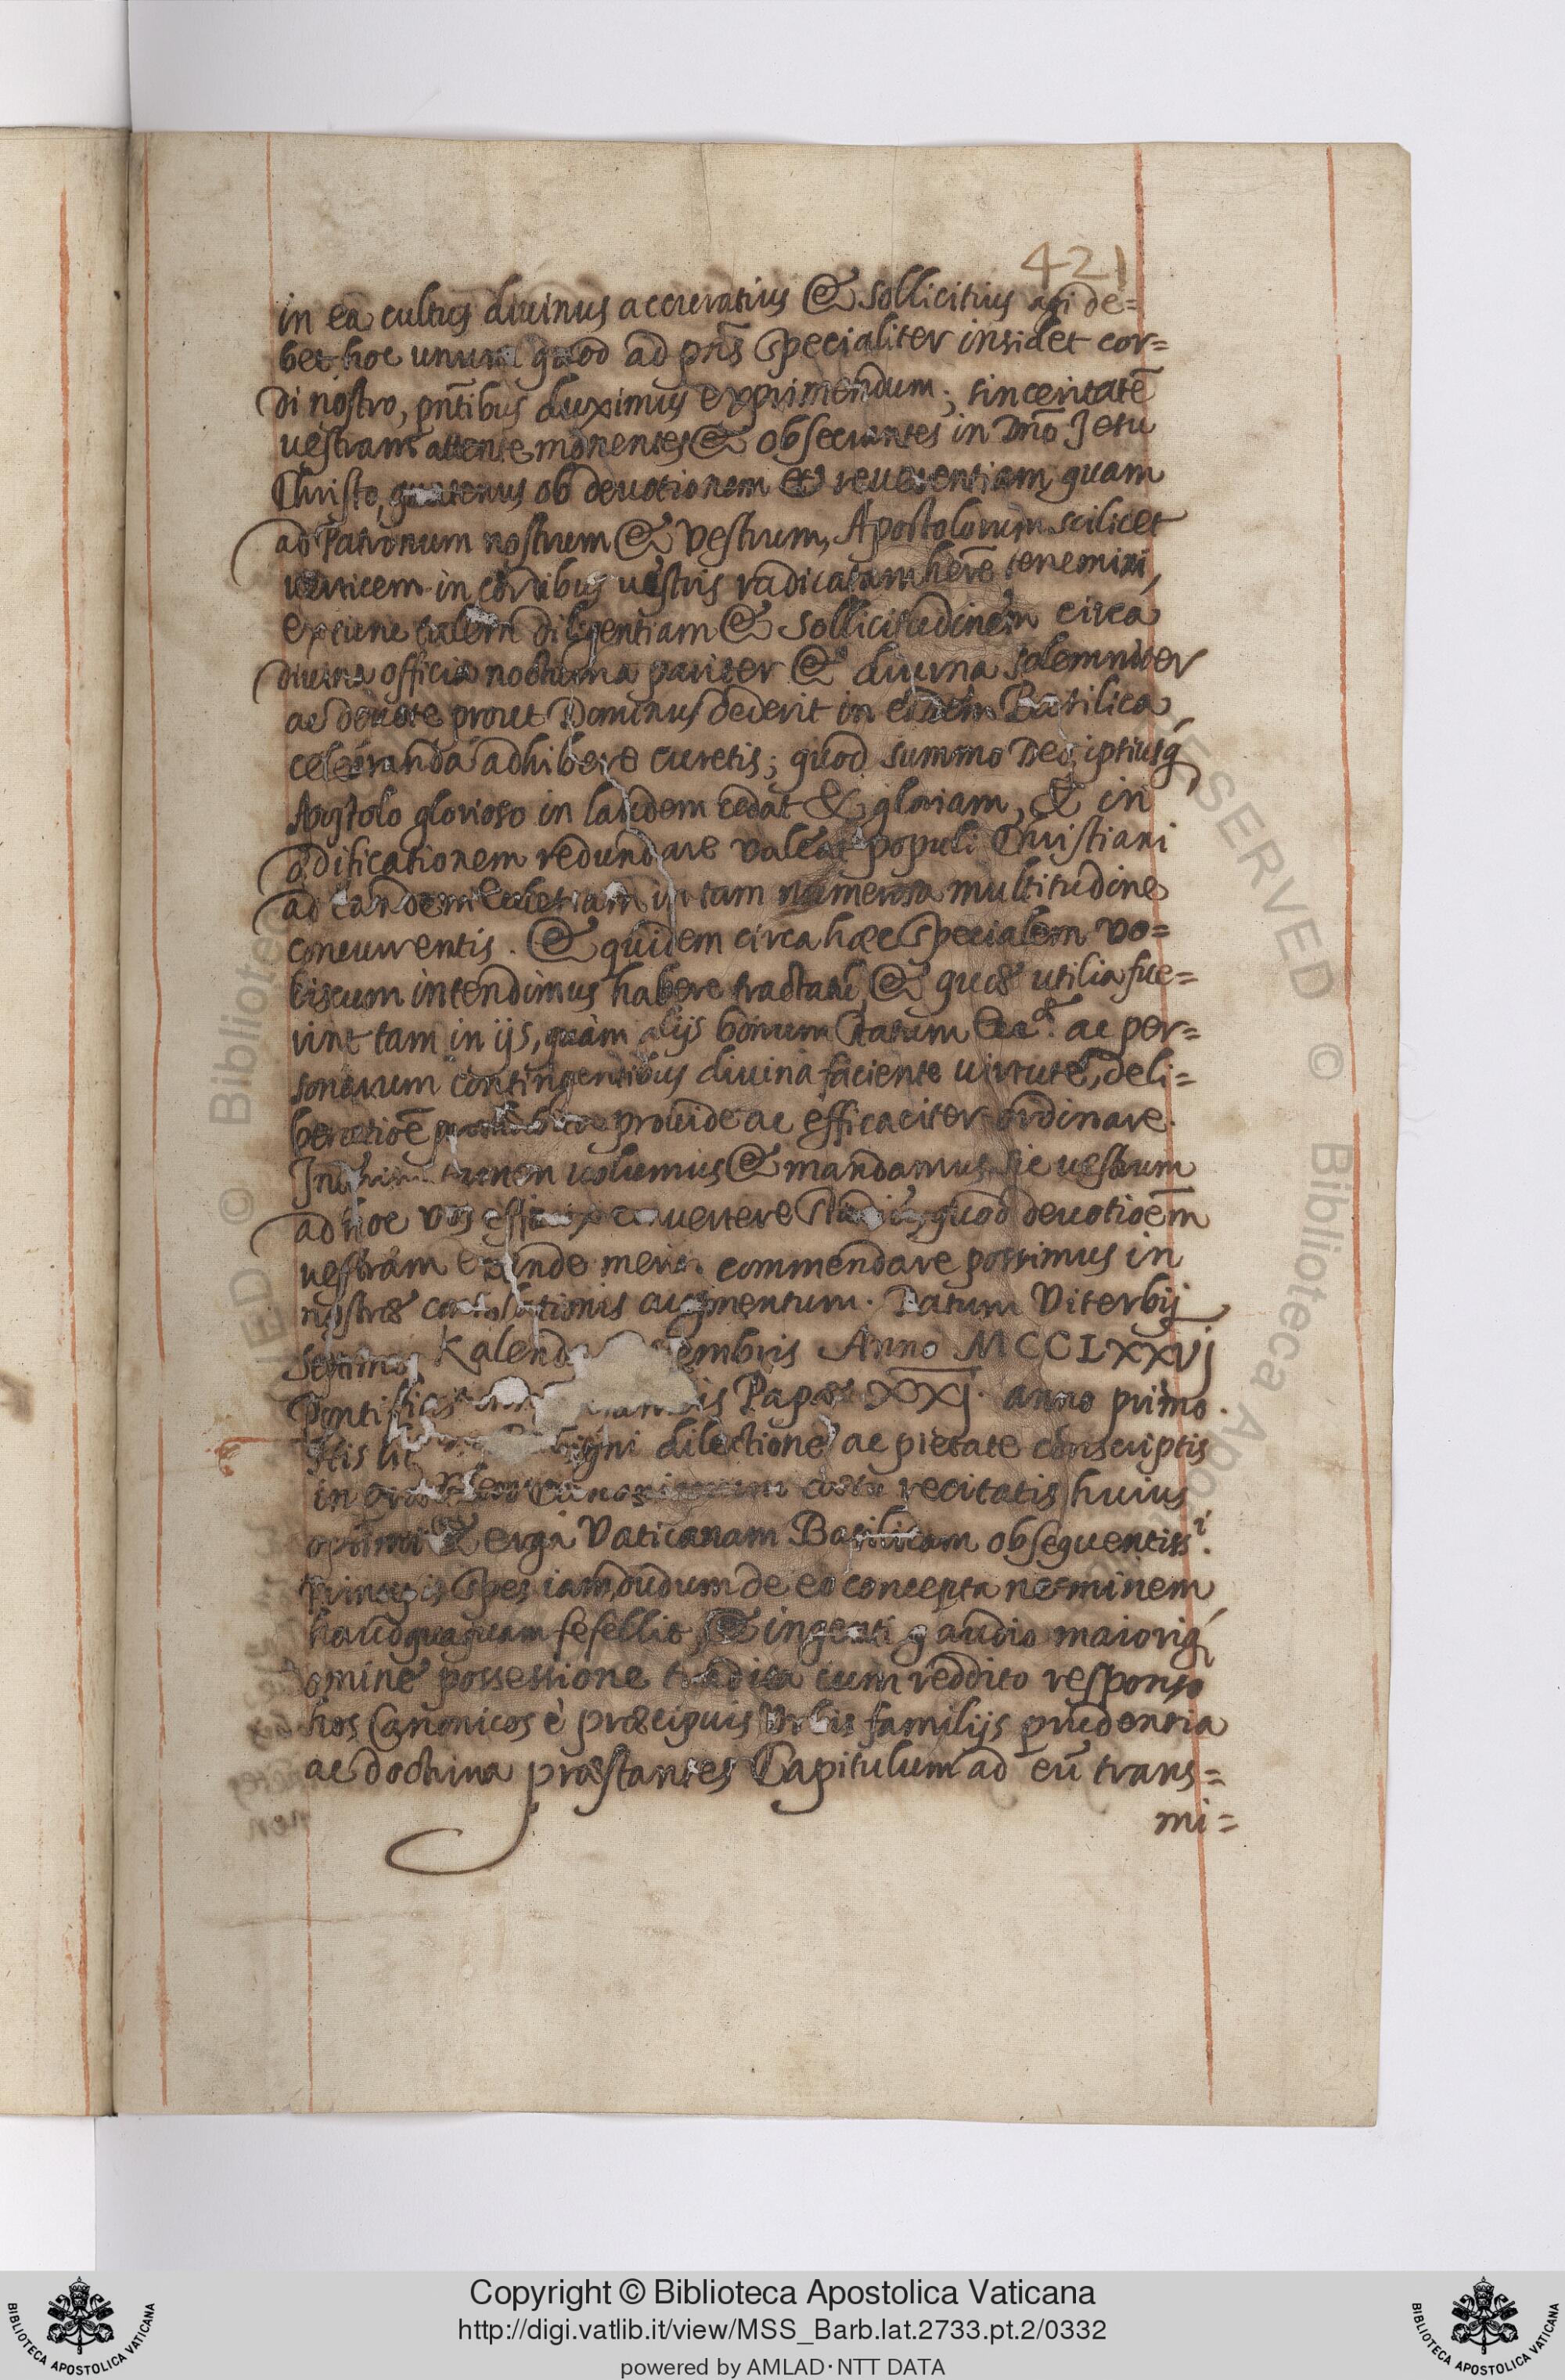 421
in ea cultus diuinus accuratius & sollicitius agi de=
bet hoc unum quod ad pñs specialiter insidet cor=
di nostro, pñtibus duximus exprimendum; sinceritatē
uestram attente monentes & obsecrantes in Dño Jesu
Christo, quatenus ob deuotionem et reuerentiam quam
ad Patronum nostrum & Vestrum, Apostolorum scilicet
uerticem in cordibus uestris radicatam hēre tenemini,
ex tunc talem diligentiam & sollicitudinem circa
diuina officia nocturna pariter & diurna solemniter
ac deuote prout Dominus dederit in eadem Basilica
celebranda adhibere curetis; quod summo Deo ipsiusq́
Apostolo glorioso in laudem cedat & gloriam, & in
ædificationem redundare valeat populi Christiani
ad eandem Ecclesiam in tam numerosa multitudine
concurrentis. & quidem circa hæc specialem vo=
biscum intendimus habere tractatū, & quæ utilia fue=
rint tam in ijs, quàm alijs bonum statum ac per=
sonarum contingentibus diuina faciente uirtute, deli=
beratiōe prouide ac efficaciter ordinare.
tamen uolumus & mandamus sic uestrum
ad hoc vos conuertere quod deuotiōem
uestram exinde commendare possimus in
nostræ augmentum. Datum Viterbij
Septimo Kalend embris Anno MCCLXXVj
Pontificat is Papæ XXj. anno primo.
His dilectione ac pietate conscriptis
in recitatis huius
optimi & erga Vaticanam Basilicam obsequentissi.
Principis spes iamdudum de eo concepta neminem
haudquaquam fefellit, & ingenti gaudio maioriq́
omine possessione tradita cum reddito responso
hos Canonicos è præcipuis Vrbis familijs prudentia
ac doctrina præstantes Capitulum ad eū trans=
mi=
Copyright © Biblioteca Apostolica Vaticana
http://digi.vatlib.it/view/MSS_Barb.lat.2733.pt.2/0332
powered by AMLAD·NTT DATA
BIBLIOTECA APOSTOLICA VATICANA
BIBLIOTECA APOSTOLICA VATICANA